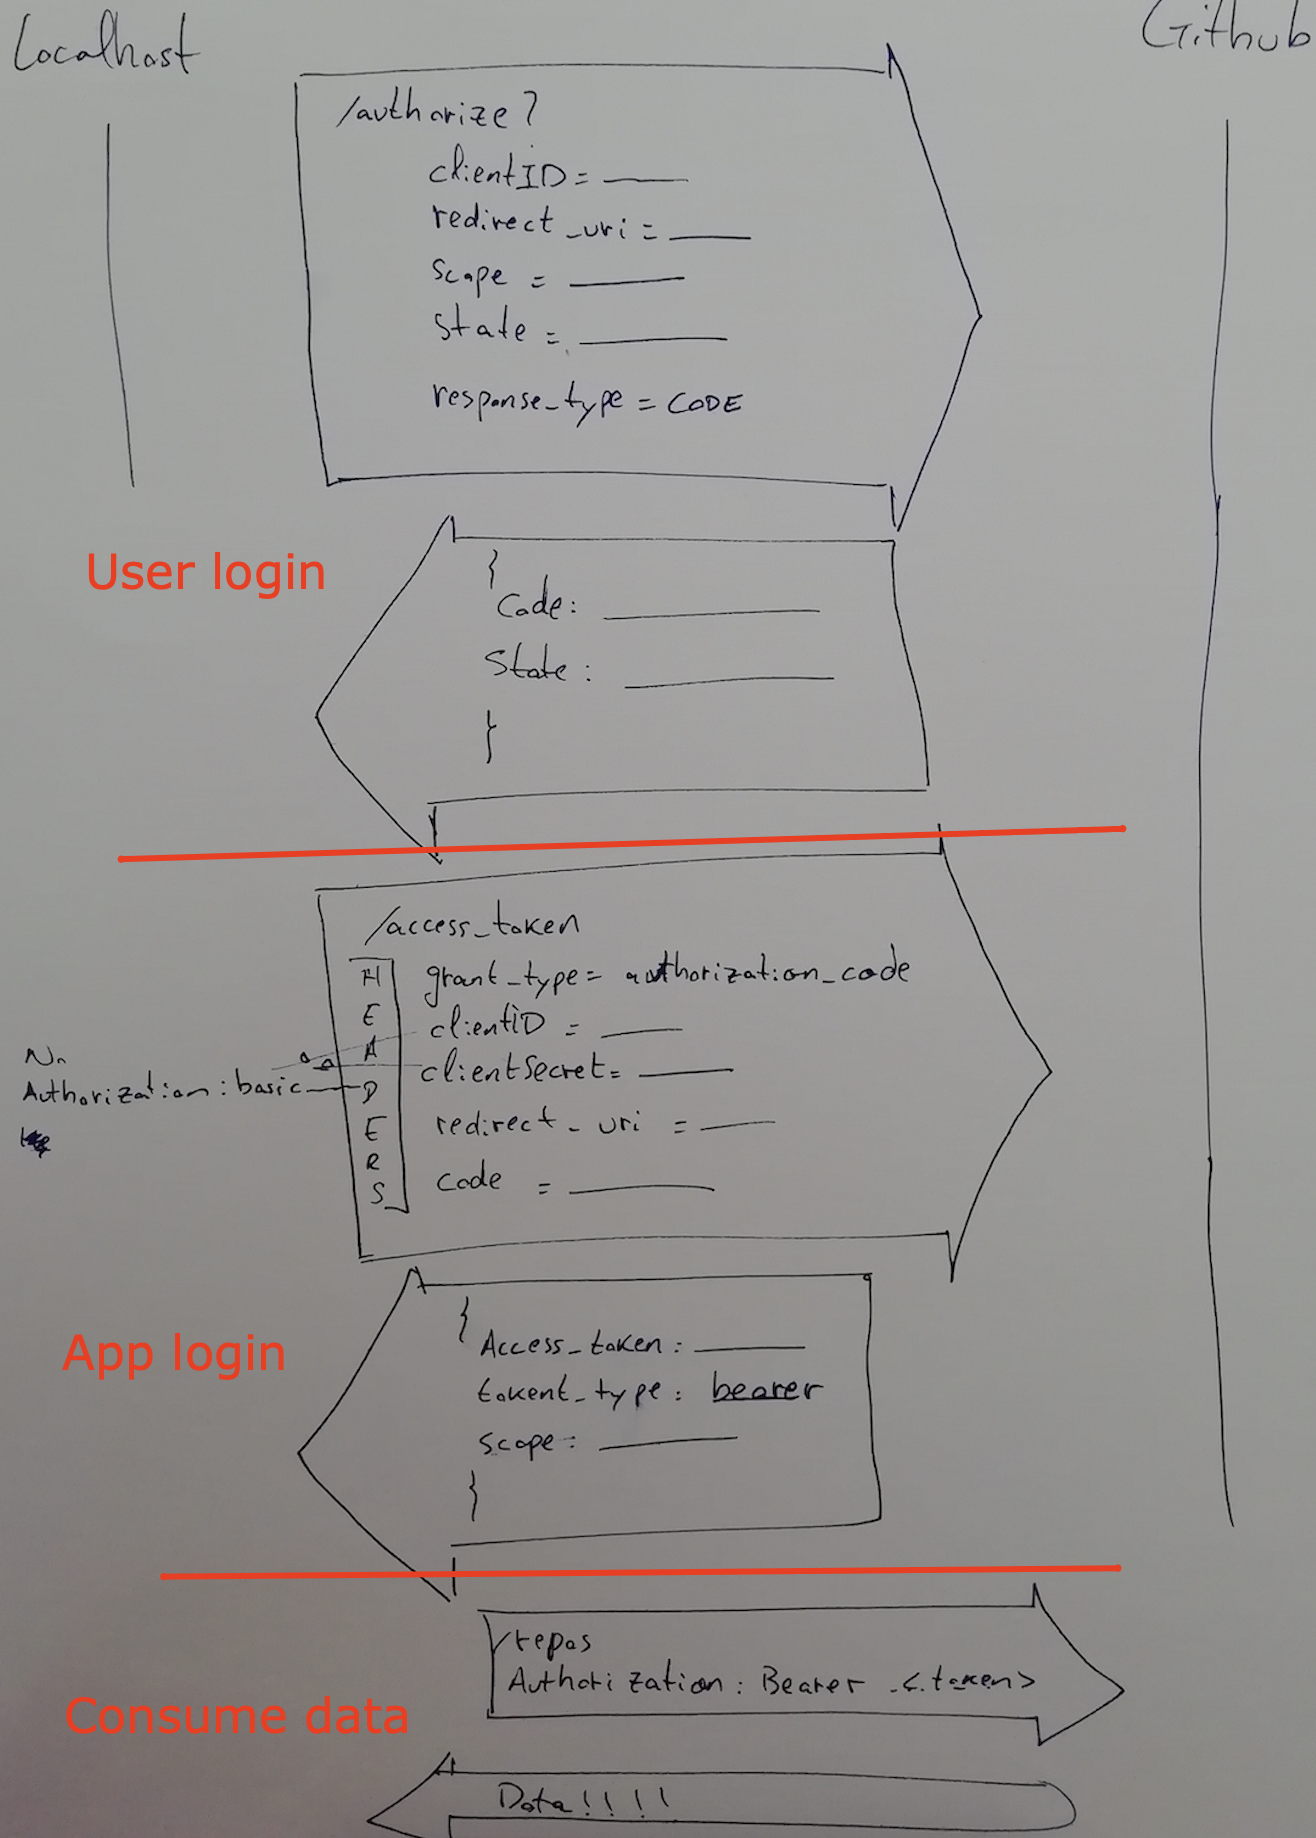 Localhost
Github
/authorize?
clientID = ____
redirect_uri = ____
scope = ____
state = ____
response_type = CODE
User login
{
Code: ____
State: ____
}
/access_token
HEADERS
grant_type = authorization_code
clientID = ____
clientSecret = ____
redirect_uri = ____
code = ____
No
Authorization: basic
App login
{
Access_token: ____
tokent_type: bearer
scope: ____
}
/repos
Authorization: Bearer <token>
Consume data
Data!!!!